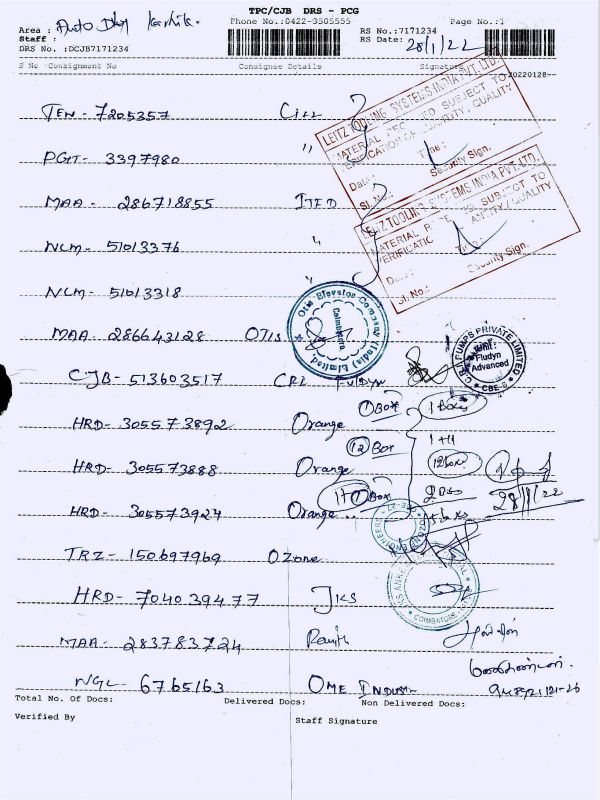 TPC/CJB DRS - PCG
Area : Auto
Phone No.:0422-3505555
Page No.:1
Staff :
RS No.:7171234
DRS No. :DCJB7171234
RS Date: 28/1/22
S No Consignment No Consignee Details Signature
20220128
TEN - 7205357
PGT- 3397980 "
MAA - 286718855 ITED
NCM- 51013376 "
NCM- 51013318 "
MAA - 286643128 OTIS
CJB - 513603517 CRL Fludyn
HRD- 3055738902 Orange
HRD- 305573888 Orange
HRD- 305573924 Orange
TRZ - 150697969 Ozone
HRD- 704039477 JKS
MAA - 283783724
NGL - 6765163 OME Indust
LEITZ TOOLING SYSTEMS INDIA PVT. LTD.
MATERIAL SUBJECT TO
VERIFICATION OF QUANTITY, QUALITY
Date: Time:
Sl. No.: Security Sign.
LEITZ TOOLING SYSTEMS INDIA PVT. LTD.
MATERIAL SUBJECT TO
VERIFICATION QUANTITY / QUALITY
Date: Time:
Sl. No.: Security Sign.
Otis Elevator Company (India) Limited.
Coimbatore
PUMPS PRIVATE LIMITED
Unit:
Fludyn
Advanced
CBE-6
Box
12 Box
1+11
12 Box
28/1/22
COIMBATORE
Total No. Of Docs: Delivered Docs: Non Delivered Docs:
Verified By Staff Signature